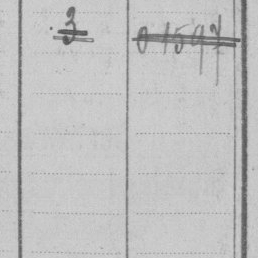 3 01597